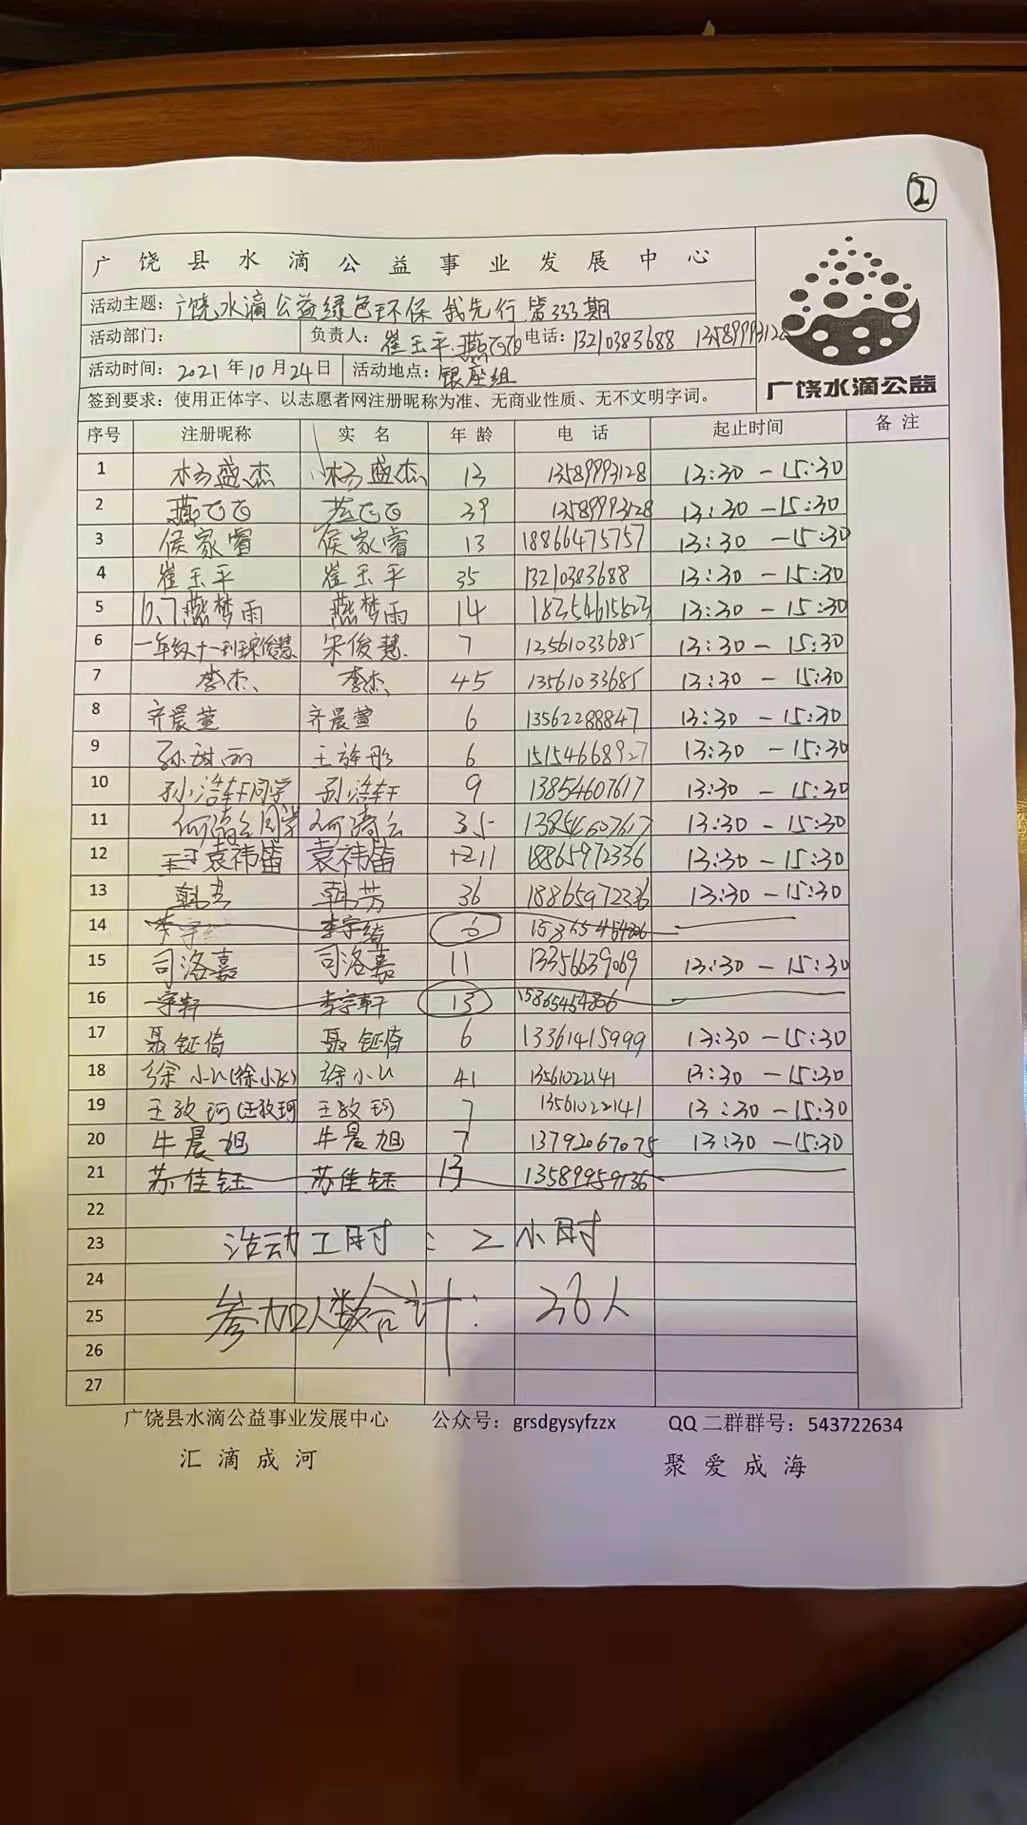 2
广饶县水滴公益事业发展中心
活动主题：广饶水滴公益绿色环保我先行 第333期
活动部门： 负责人：崔玉平.燕飞飞 电话：13210383688 13589993128
活动时间：2021年10月24日 活动地点：银座组
签到要求：使用正体字、以志愿者网注册昵称为准、无商业性质、无不文明字词。
广饶水滴公益
序号 注册昵称 实名 年龄 电话 起止时间 备注
1 杨盛杰 杨盛杰 13 13589993128 13:30-15:30
2 燕飞飞 燕飞飞 39 13589993128 13:30-15:30
3 侯家睿 侯家睿 13 18866475757 13:30-15:30
4 崔玉平 崔玉平 35 13210383688 13:30-15:30
5 6.7燕梦雨 燕梦雨 14 18354615523 13:30-15:30
6 一年级十一班宋俊慧 宋俊慧 7 13561033685 13:30-15:30
7 李杰 李杰 45 13561033685 13:30-15:30
8 齐晨萱 齐晨萱 6 13562288847 13:30-15:30
9 6 15154668927 13:30-15:30
10 孙浩轩同学 孙浩轩 9 13854607617 13:30-15:30
11 同学 35 13854607617 13:30-15:30
12 袁祎笛 袁祎笛 11 18865972336 13:30-15:30
13 韩芳 韩芳 36 18865972336 13:30-15:30
14 李宇 李宇绮 6
15 司洛嘉 司洛嘉 11 13356639069 13:30-15:30
16 宇轩 李宇轩 13 15865454806
17 聂钲倚 聂钲倚 6 13361415999 13:30-15:30
18 徐小 徐小 41 13561022141 13:30-15:30
19 王孜珂(王孜珂 王孜珂 7 13561022141 13:30-15:30
20 牛晨旭 牛晨旭 7 13792067075 13:30-15:30
21 苏佳钰 苏佳钰 13 13589959736
22
23 活动工时：2小时
24
25 参加人数合计：36人
26
27
广饶县水滴公益事业发展中心 公众号：grsdgysyfzzx QQ二群群号：543722634
汇滴成河 聚爱成海